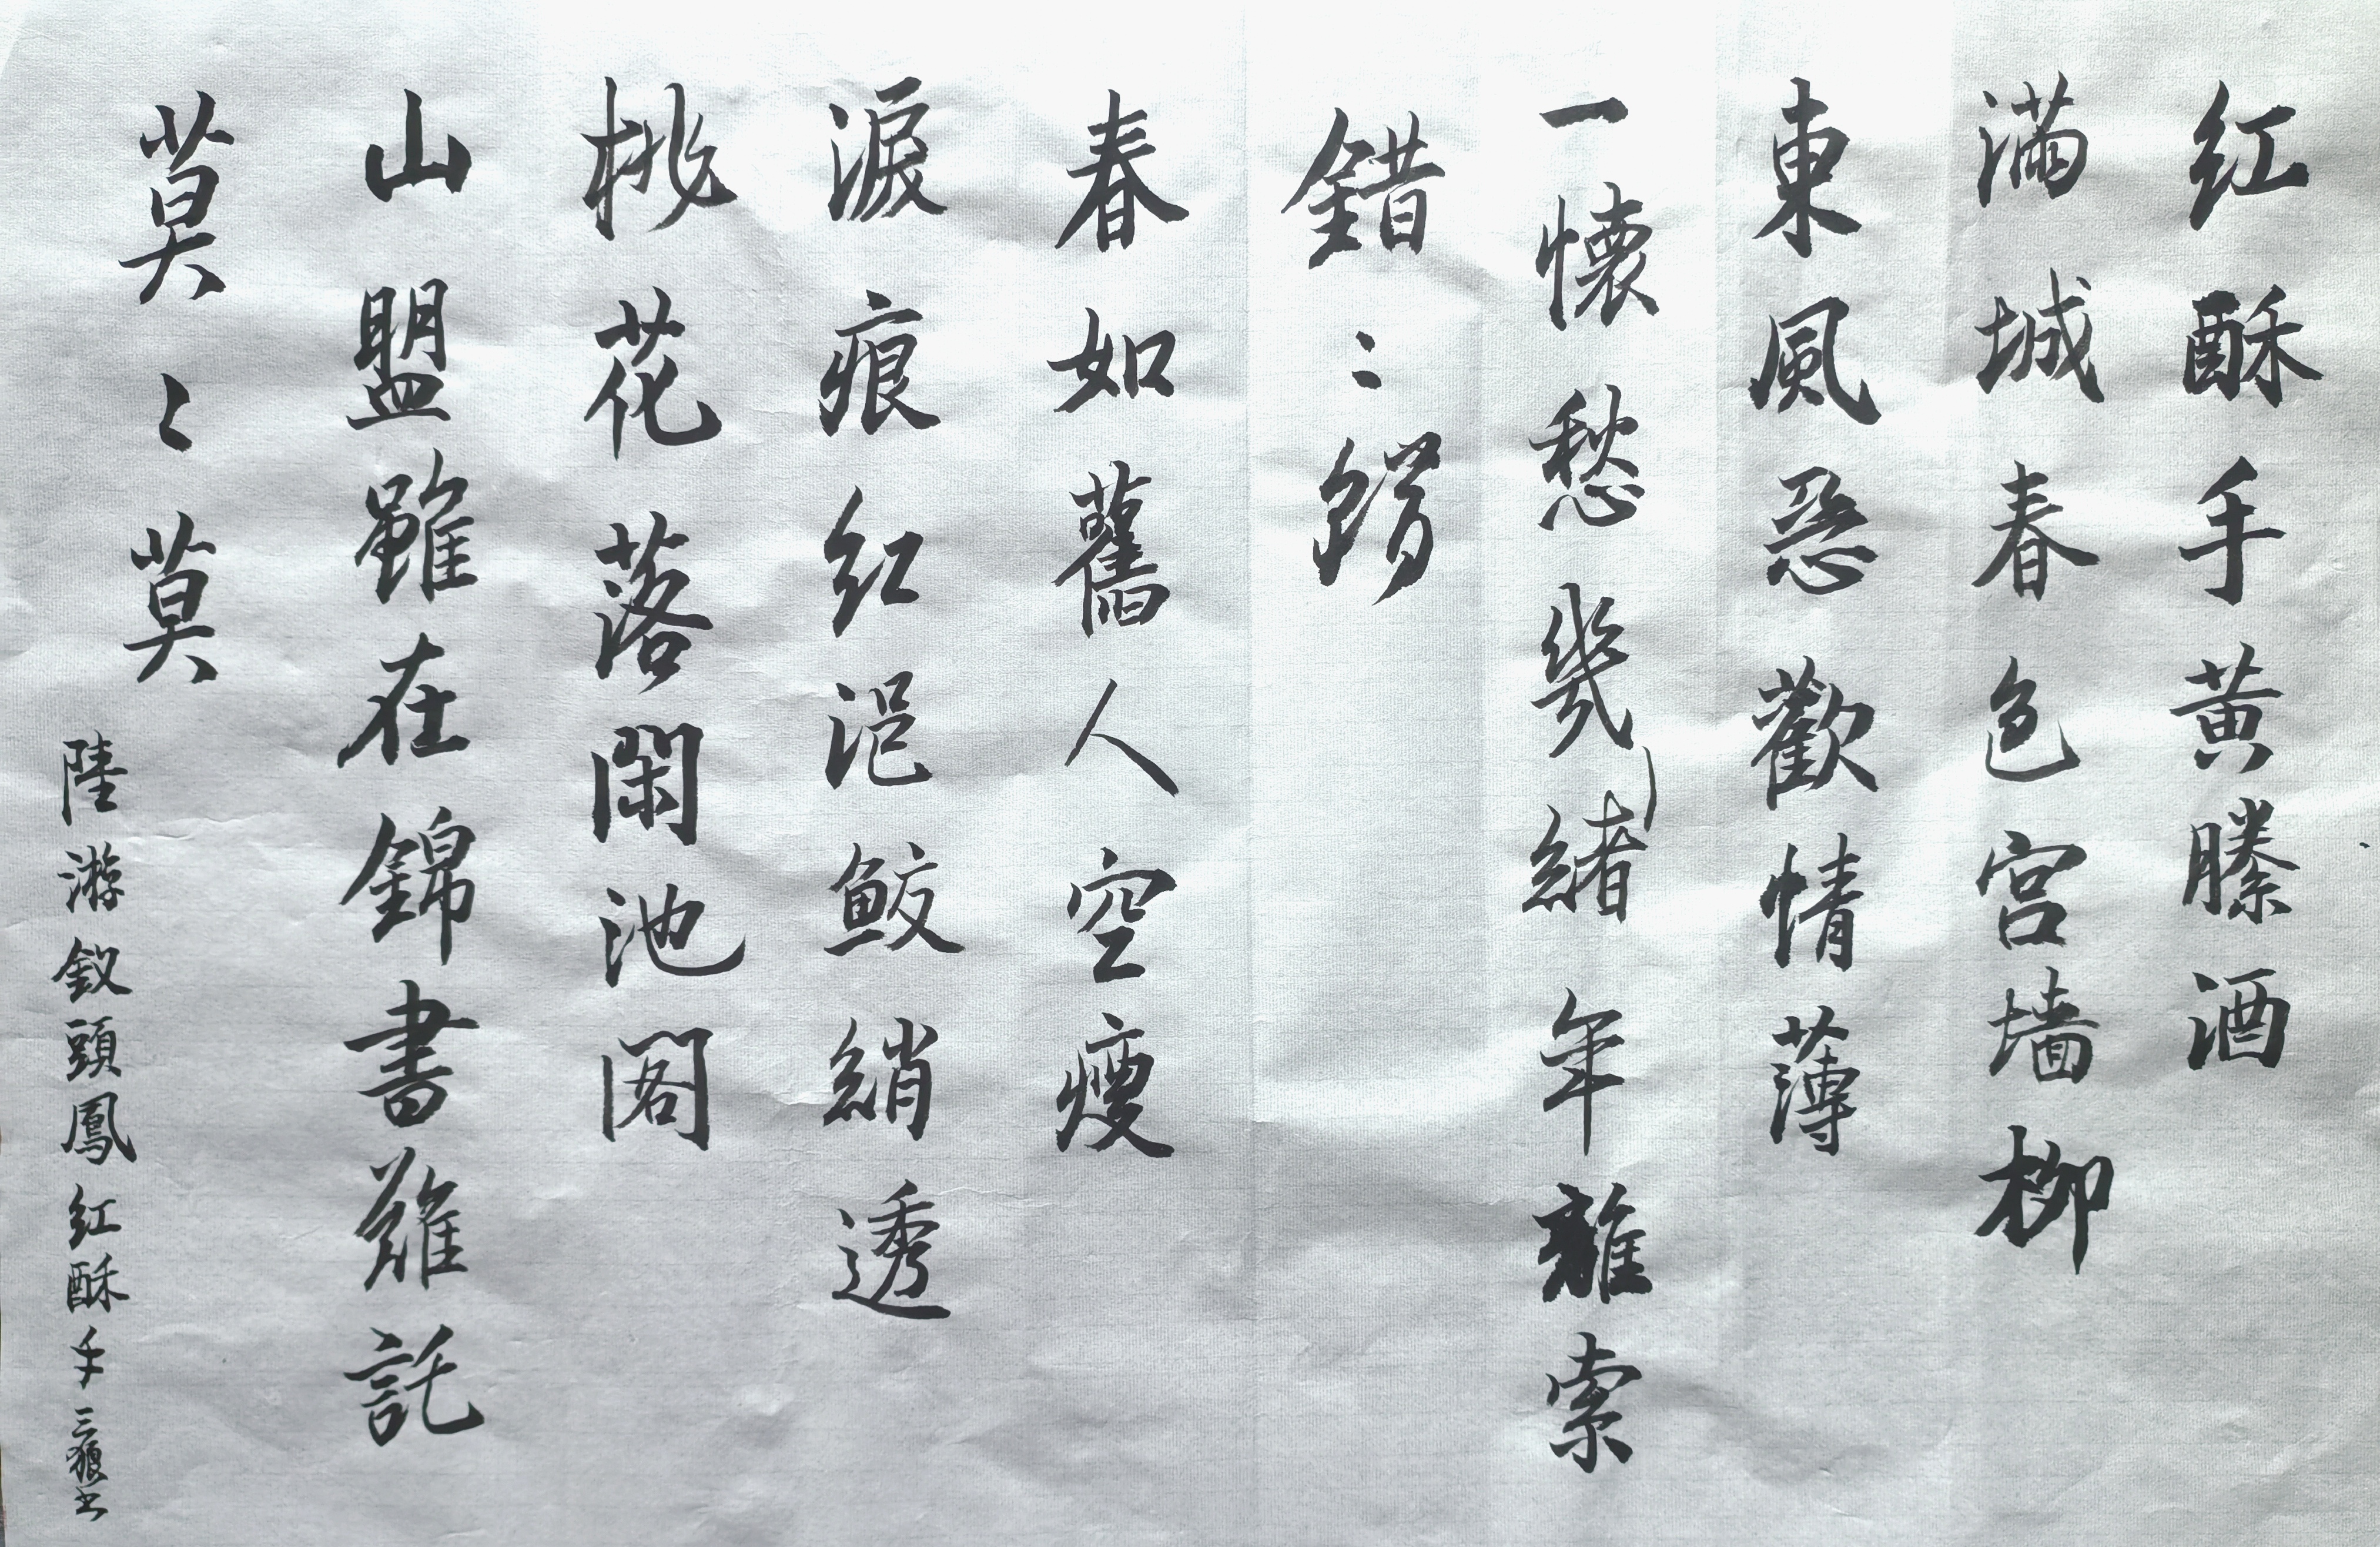 红酥手黄縢酒
滿城春色宫墙柳
東風恶歡情薄
一懷愁幾緒年離索
錯〻錯
春如舊人空瘦
淚痕红浥鮫綃透
桃花落閑池閣
山盟雖在錦書難託
莫〻莫
陸游釵頭鳳红酥手三狼书